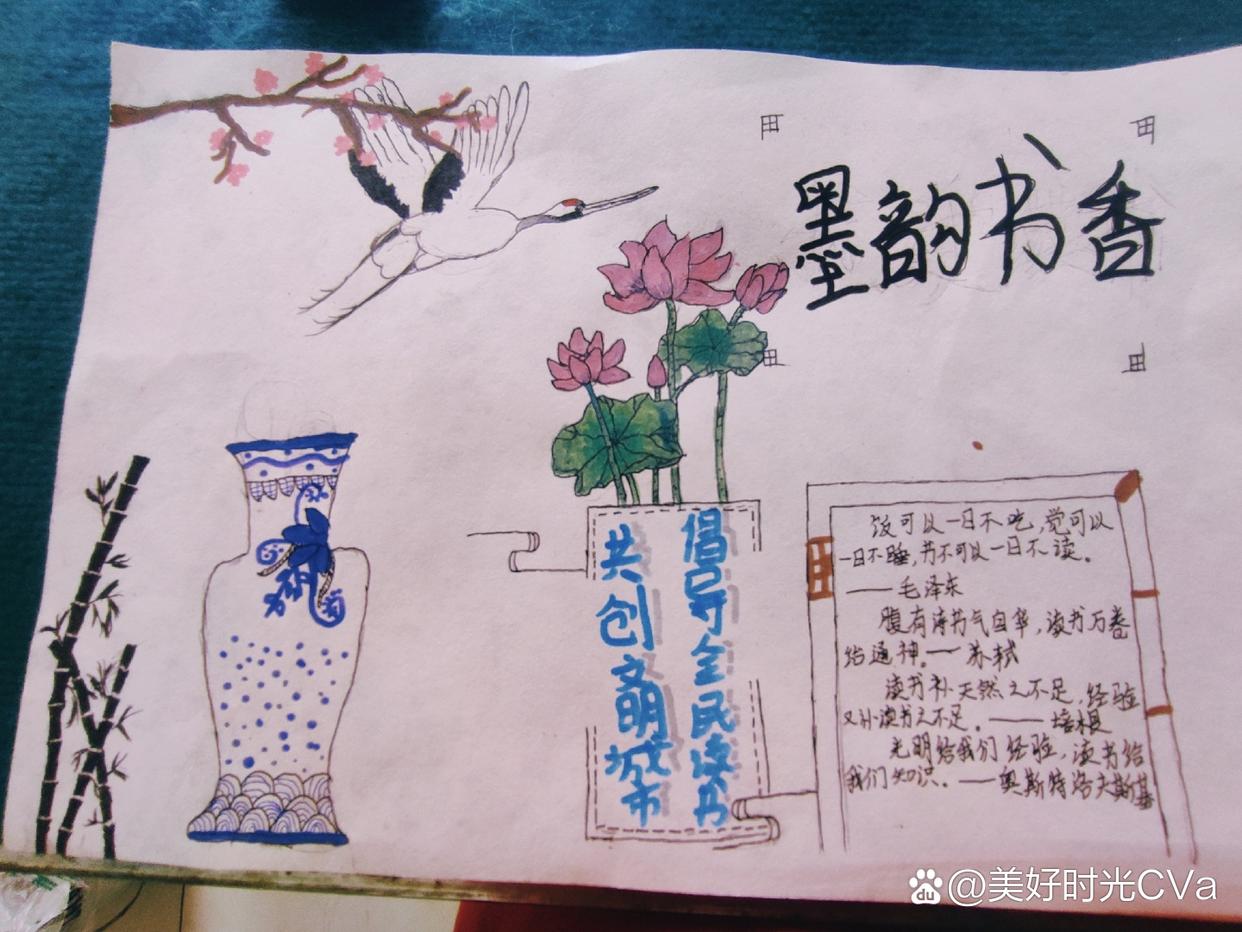 墨韵书香
倡导全民读书
共创文明城市
饭可以一日不吃，觉可以
一日不睡，书不可以一日不读。
——毛泽东
腹有诗书气自华，读书万卷
始通神。——苏轼
读书补天然之不足，经验
又补读书之不足。——培根
光明给我们经验，读书给
我们知识。——奥斯特洛夫斯基
@美好时光CVa